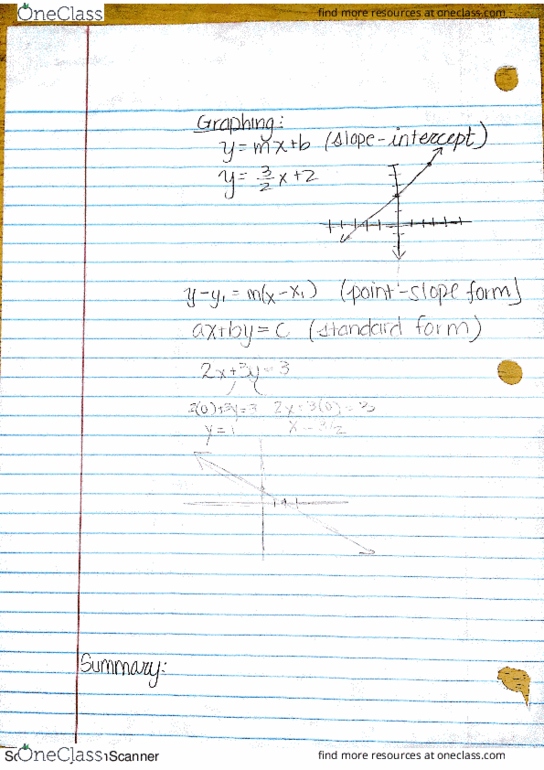 OneClass
find more resources at oneclass.com
Graphing:
y=mx+b (slope-intercept)
y= 3/2 x+2
y-y₁ = m(x-x₁) (point-slope form)
ax+by=c (standard form)
2x+3y=3
2(0)+3y=3
y=1
Summary:
OneClass
Scanner
find more resources at oneclass.com